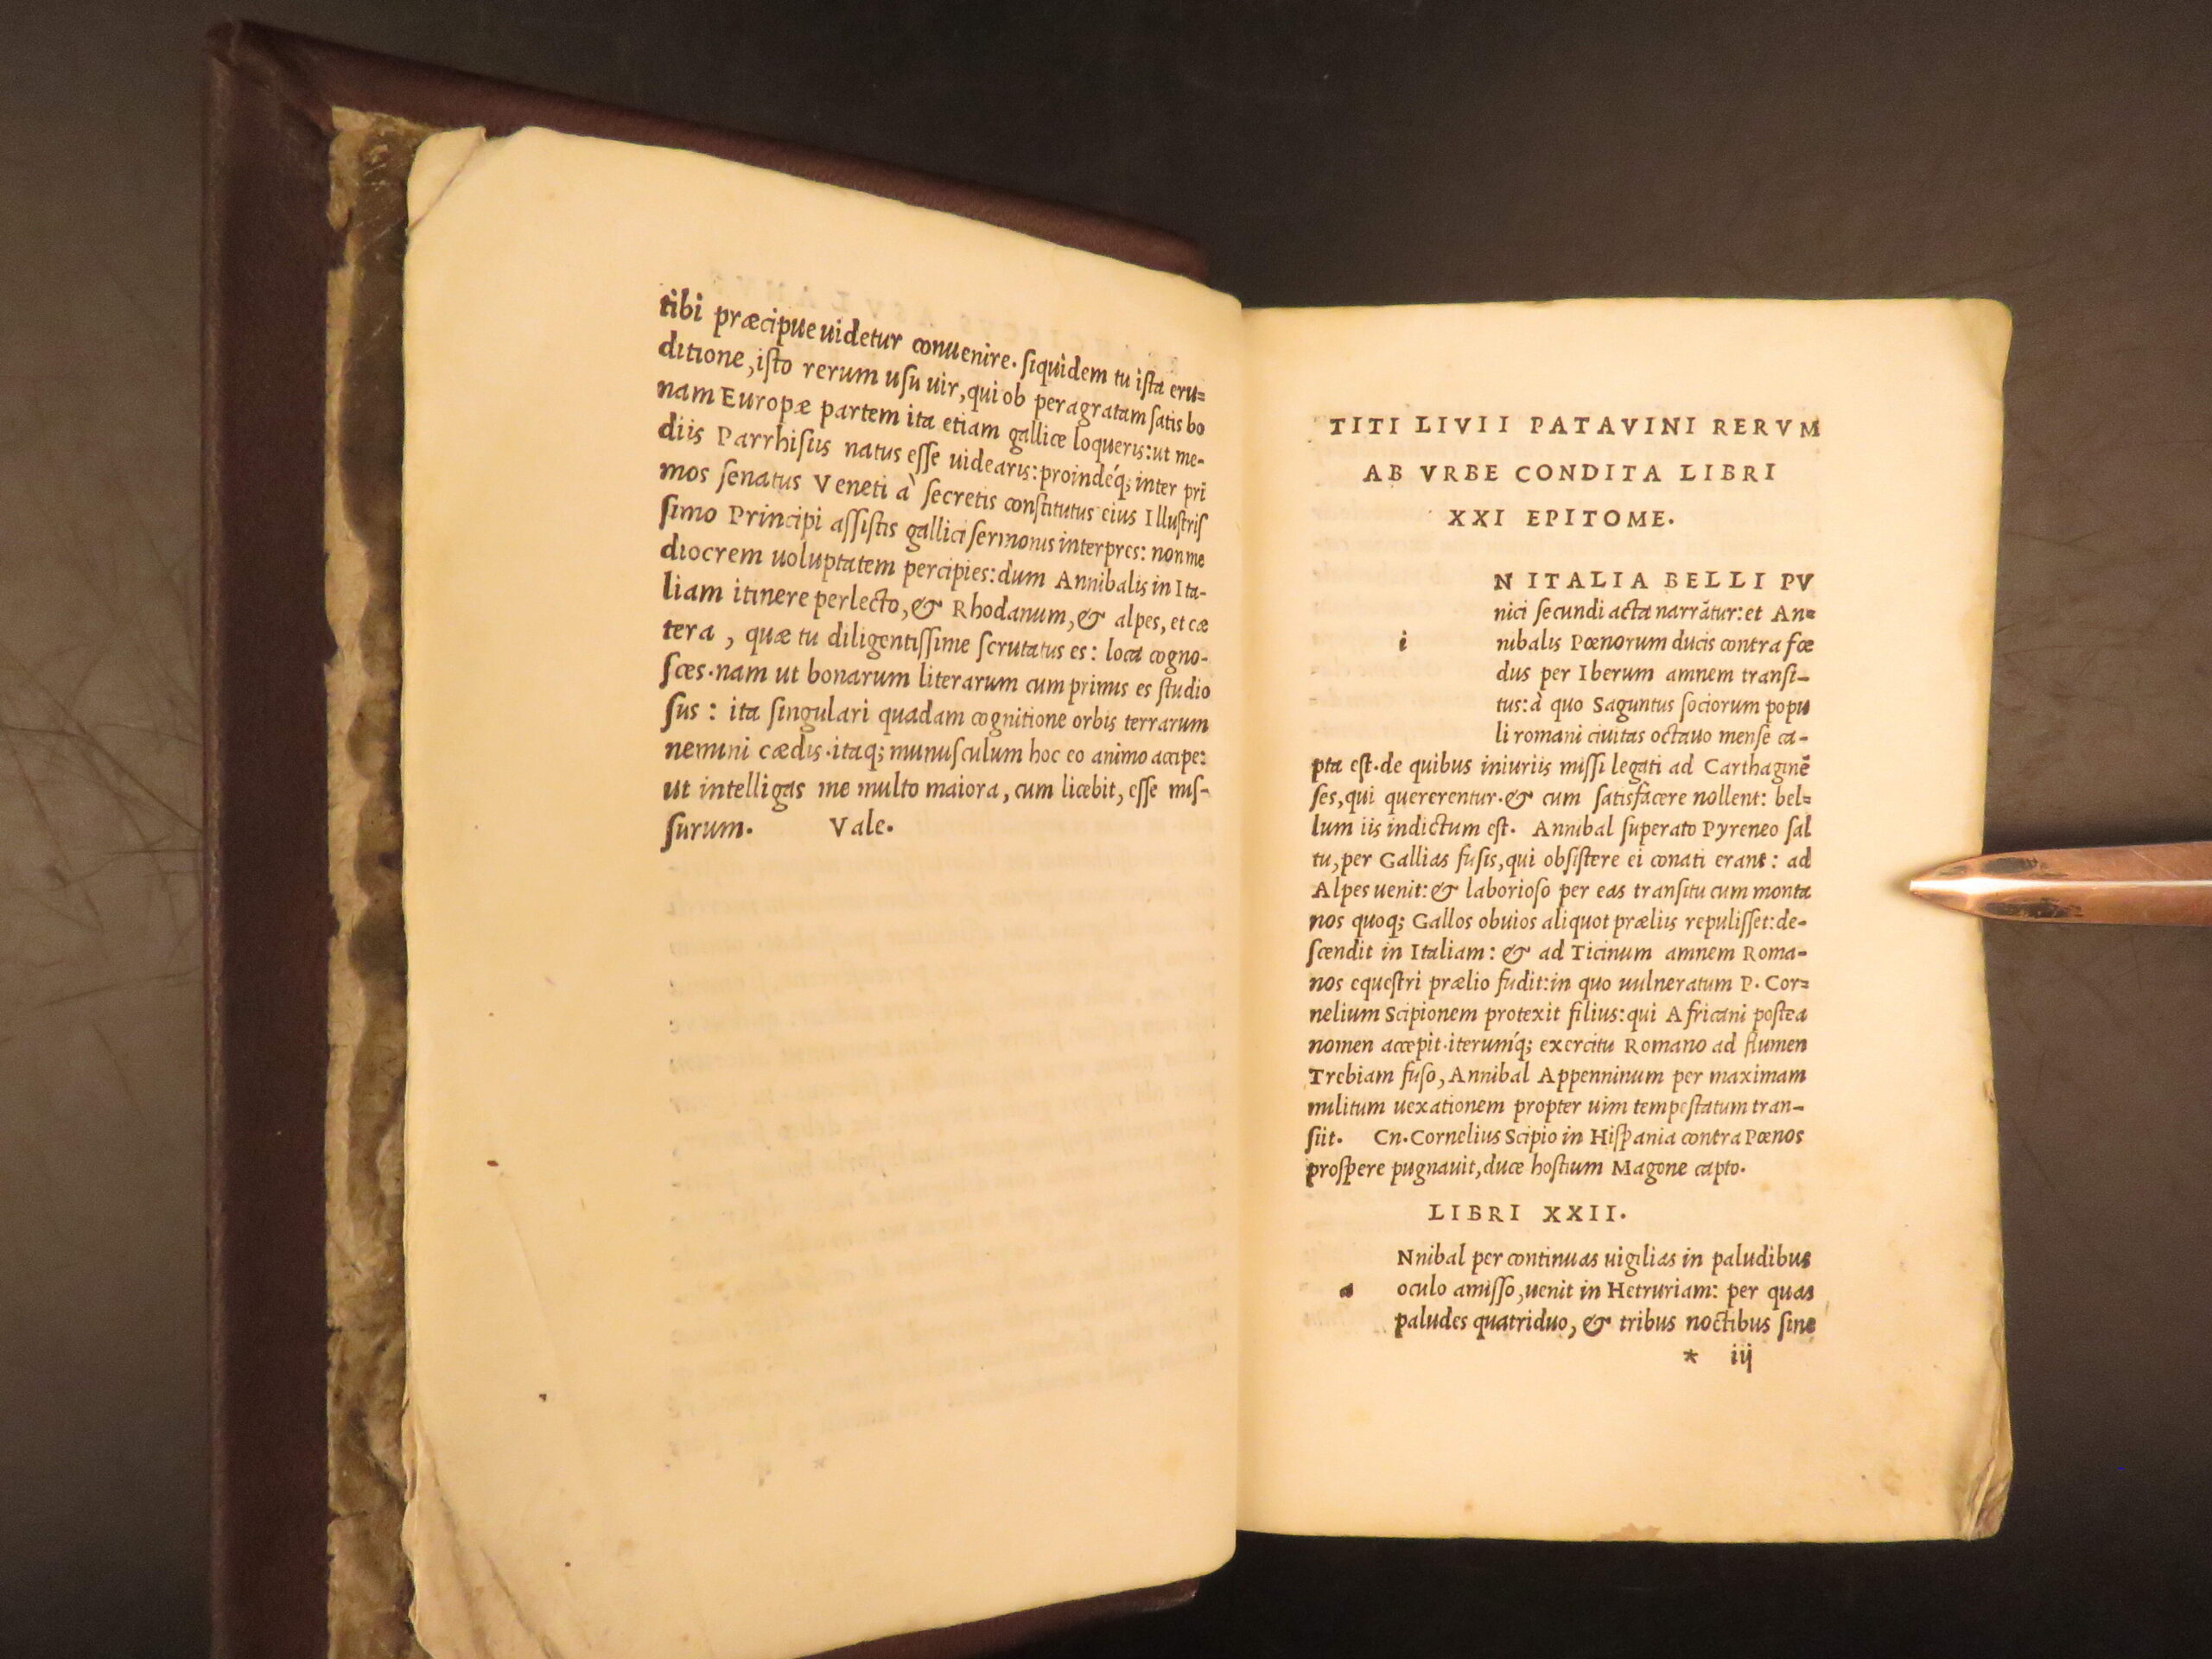 tibi præcipue uidetur conuenire. ſiquidem tu iſta eru=
ditione, iſto rerum uſu uir, qui ob peragratam ſatis bo
nam Europæ partem ita etiam gallice loqueris: ut me-
diis Parrhiſiis natus eſſe uidearis: proindéq; inter pri
mos ſenatus Veneti à ſecretis conſtitutus eius Illuſtriſ
ſimo Principi aſſiſtis gallici ſermonis interpres: non me
diocrem uoluptatem percipies: dum Annibalis in Ita-
liam itinere perlecto, & Rhodanum, & alpes, et cæ
tera, quæ tu diligentiſſime ſcrutatus es: loca cogno-
ſces. nam ut bonarum literarum cum primis es ſtudio
ſus: ita ſingulari quadam cognitione orbis terrarum
nemini cædis. itaq; munuſculum hoc eo animo accipe:
ut intelligas me multo maiora, cum licebit, eſſe miſ-
ſurum. Vale.
TITI LIVII PATAVINI RERVM
AB VRBE CONDITA LIBRI
XXI EPITOME.
N ITALIA BELLI PV
nici ſecundi acta narrãtur: et An=
i nibalis Pœnorum ducis contra fœ
dus per Iberum amnem tranſi-
tus: à quo Saguntus ſociorum popu
li romani ciuitas octauo menſe ca-
pta eſt. de quibus iniuriis miſſi legati ad Carthaginẽ
ſes, qui quererentur. & cum ſatisfacere nollent: bel=
lum iis indictum eſt. Annibal ſuperato Pyreneo ſal
tu, per Gallias fuſis, qui obſiſtere ei conati erant: ad
Alpes uenit: & laborioſo per eas tranſitu cum monta
nos quoq; Gallos obuios aliquot præliis repuliſſet: de-
ſcendit in Italiam: & ad Ticinum amnem Roma-
nos equeſtri prælio fudit: in quo uulneratum P. Cor=
nelium Scipionem protexit filius: qui Africani poſtea
nomen accepit. iterumq́; exercitu Romano ad flumen
Trebiam fuſo, Annibal Appenninum per maximam
militum uexationem propter uim tempeſtatum tran-
ſiit. Cn. Cornelius Scipio in Hiſpania contra Pœnos
proſpere pugnauit, duce hoſtium Magone capto.
LIBRI XXII.
Nnibal per continuas uigilias in paludibus
a oculo amiſſo, uenit in Hetruriam: per quas
paludes quatriduo, & tribus noctibus ſine
* iij